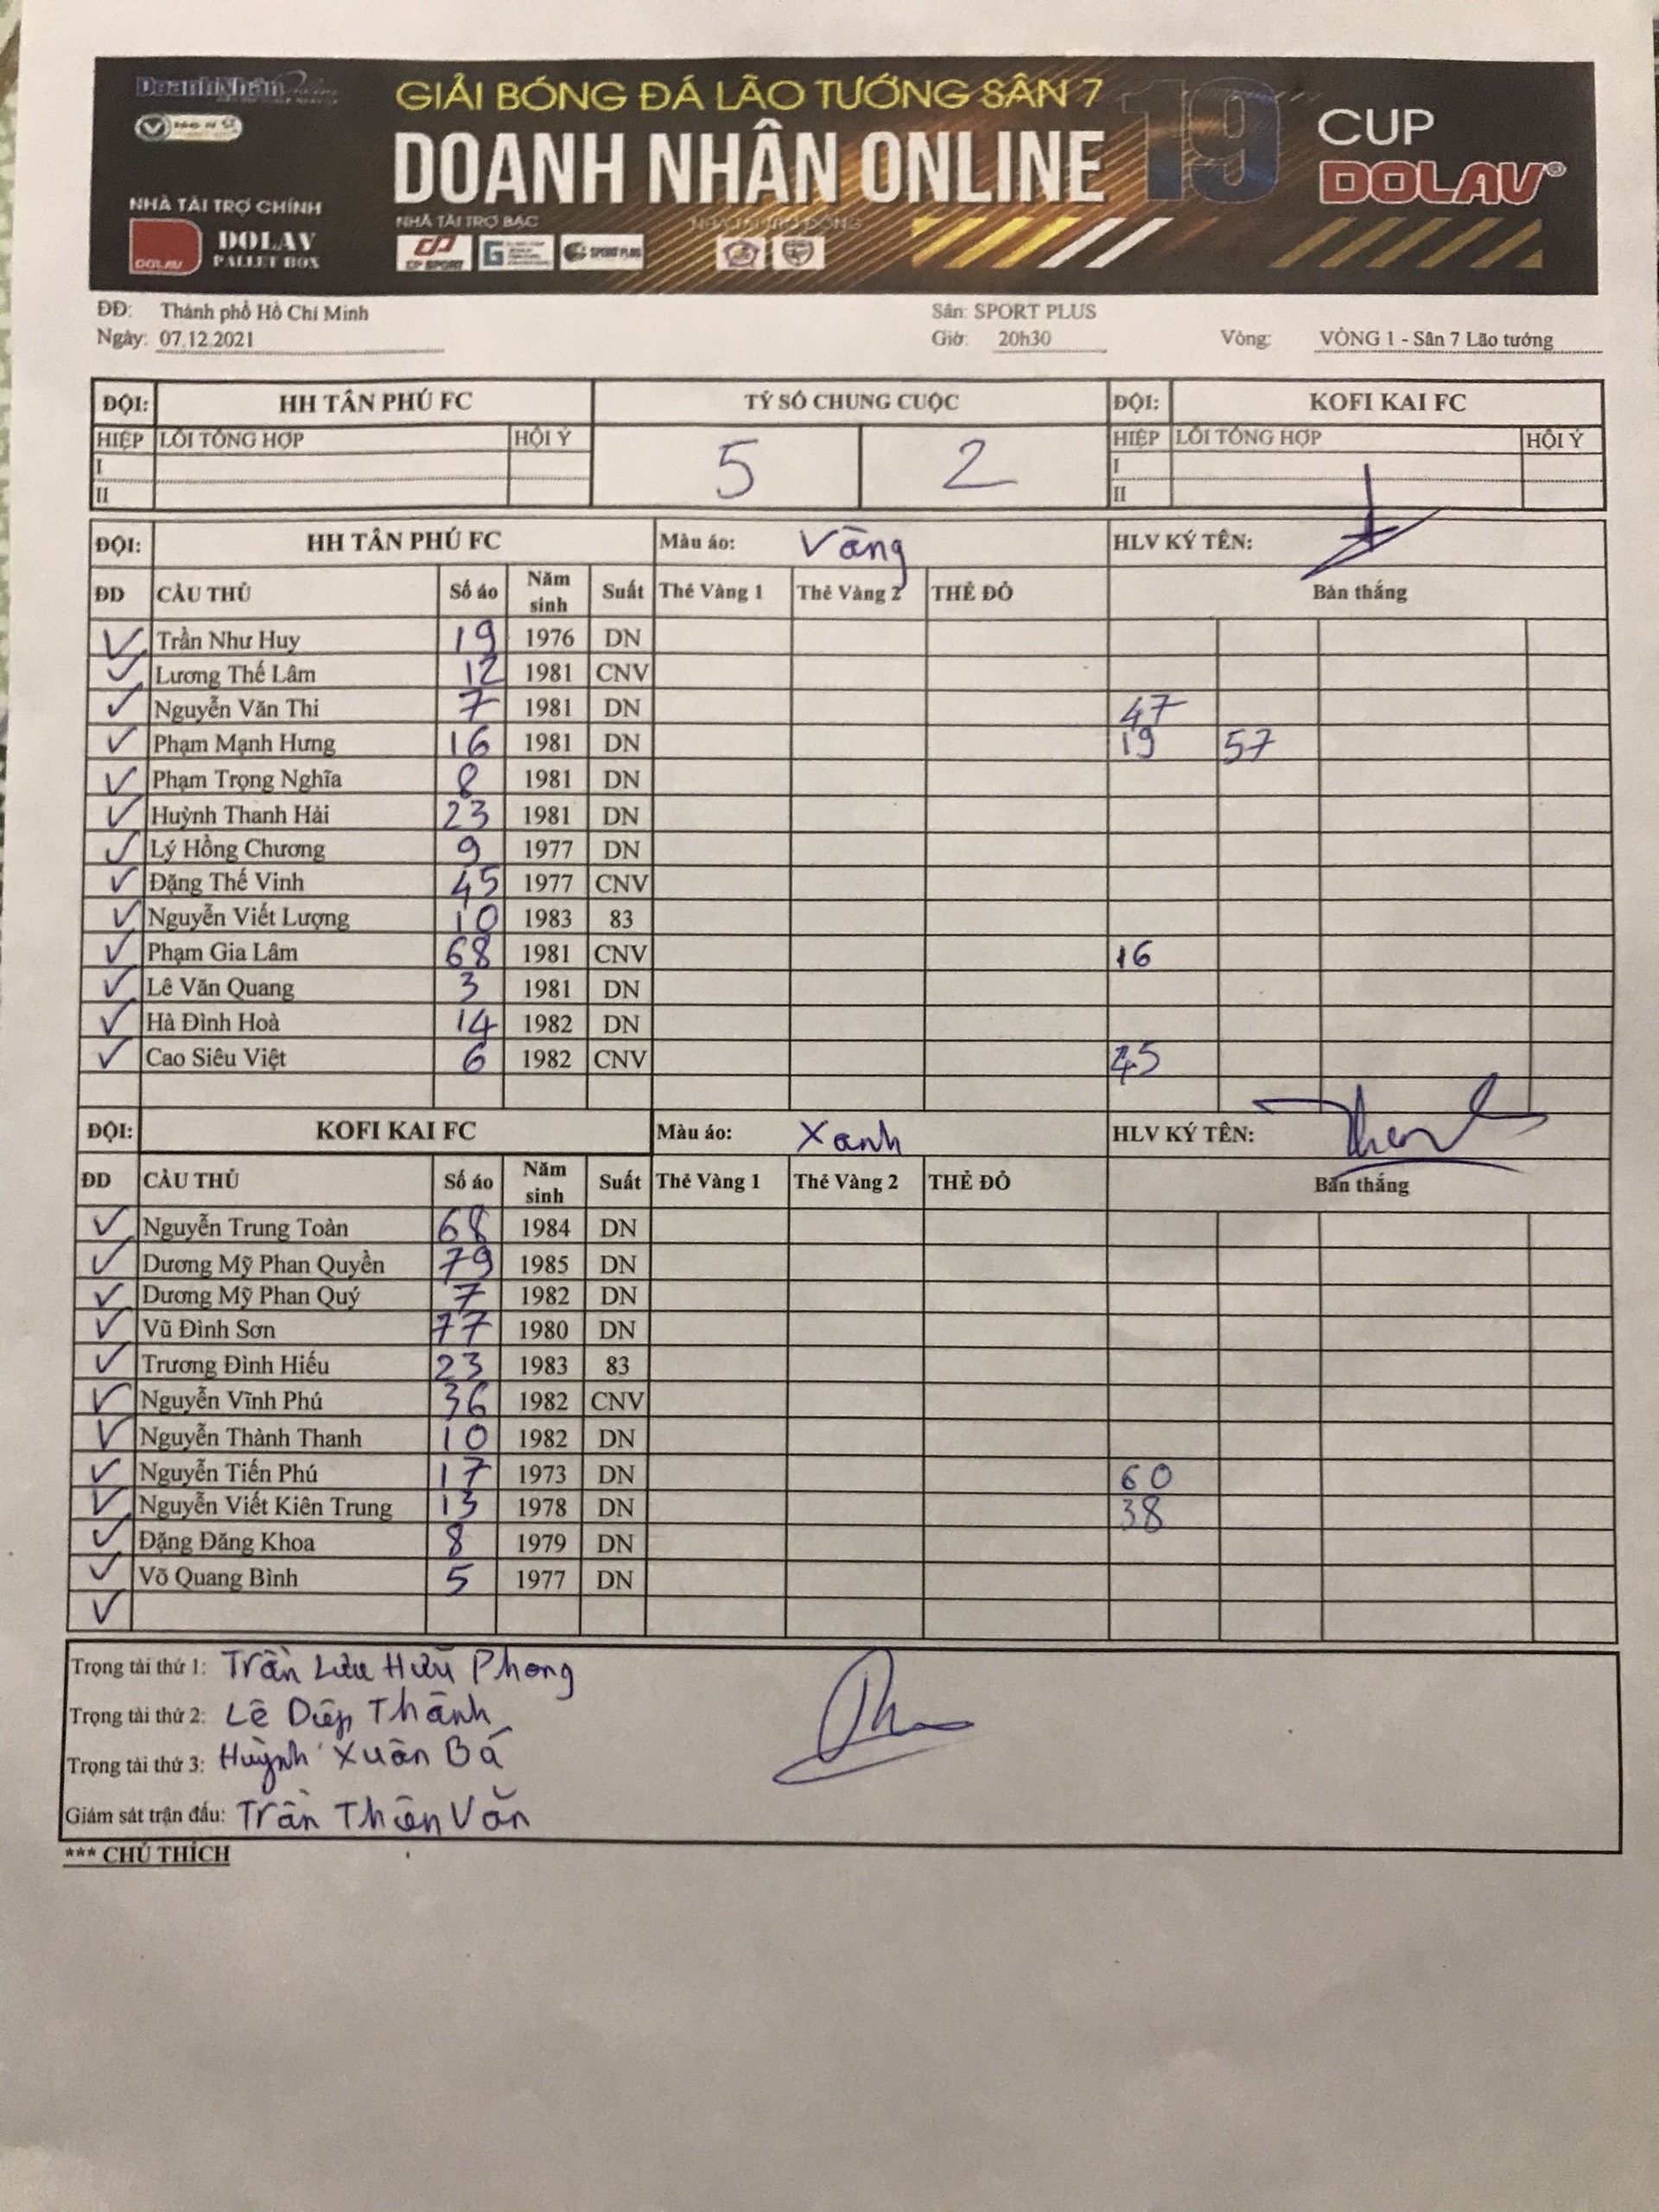 DoanhNhân
GIẢI BÓNG ĐÁ LÃO TƯỚNG SÂN 7
DOANH NHÂN ONLINE 19
CUP
DOLAV®
NHÀ TÀI TRỢ CHÍNH
DOLAV
DOLAV
PALLET BOX
NHÀ TÀI TRỢ BẠC
CP SPORT
SPORT PLUS
ĐĐ: Thành phố Hồ Chí Minh Sân: SPORT PLUS
Ngày: 07.12.2021 Giờ: 20h30 Vòng: VÒNG 1 - Sân 7 Lão tướng
ĐỘI: HH TÂN PHÚ FC TỶ SỐ CHUNG CUỘC ĐỘI: KOFI KAI FC
HIỆP LỖI TỔNG HỢP HỘI Ý 5 2 HIỆP LỖI TỔNG HỢP HỘI Ý
I I
II II
ĐỘI: HH TÂN PHÚ FC Màu áo: Vàng HLV KÝ TÊN:
ĐD CẦU THỦ Số áo Năm sinh Suất Thẻ Vàng 1 Thẻ Vàng 2 THẺ ĐỎ Bàn thắng
Trần Như Huy 19 1976 DN
Lương Thế Lâm 12 1981 CNV
Nguyễn Văn Thi 7 1981 DN 47
Phạm Mạnh Hưng 16 1981 DN 19 57
Phạm Trọng Nghĩa 8 1981 DN
Huỳnh Thanh Hải 23 1981 DN
Lý Hồng Chương 9 1977 DN
Đặng Thế Vinh 45 1977 CNV
Nguyễn Viết Lượng 10 1983 83
Phạm Gia Lâm 68 1981 CNV 16
Lê Văn Quang 3 1981 DN
Hà Đình Hoà 14 1982 DN
Cao Siêu Việt 6 1982 CNV
ĐỘI: KOFI KAI FC Màu áo: Xanh HLV KÝ TÊN:
ĐD CẦU THỦ Số áo Năm sinh Suất Thẻ Vàng 1 Thẻ Vàng 2 THẺ ĐỎ Bàn thắng
Nguyễn Trung Toàn 68 1984 DN
Dương Mỹ Phan Quyền 79 1985 DN
Dương Mỹ Phan Quý 7 1982 DN
Vũ Đình Sơn 77 1980 DN
Trương Đình Hiếu 23 1983 83
Nguyễn Vĩnh Phú 36 1982 CNV
Nguyễn Thành Thanh 10 1982 DN
Nguyễn Tiến Phú 17 1973 DN 60
Nguyễn Viết Kiên Trung 13 1978 DN 38
Đặng Đăng Khoa 8 1979 DN
Võ Quang Bình 5 1977 DN
Trọng tài thứ 1: Trần Lưu Hữu Phong
Trọng tài thứ 2: Lê Diệp Thành
Trọng tài thứ 3: Huỳnh Xuân Bá
Giám sát trận đấu: Trần Thiện Văn
*** CHÚ THÍCH